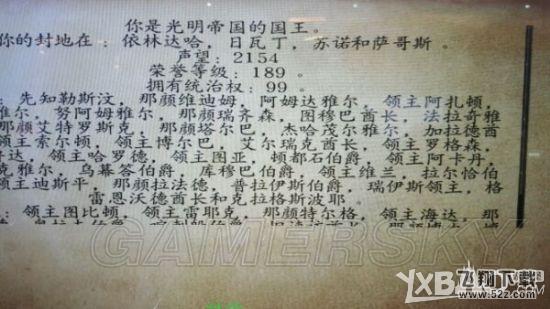 你是光明帝国的国王。
你的封地在：依林达哈，日瓦丁，苏诺和萨哥斯。
声望：2154
荣誉等级：189。
拥有统治权：99。
：先知勒斯汶，那颜维迪姆，阿姆达雅尔，领主阿扎顿，
雅尔，努阿姆雅尔，那颜瑞齐森，图穆巴酋长，法拉奇雅
那颜艾特罗斯克，那颜塔尔巴，杰哈茂尔雅尔，加拉德酋
领主索尔顿，领主博尔巴，艾尔瑞克酋长，领主罗格森，
达，领主哈罗德，领主图亚，顿都石伯爵，领主阿卡丹，
克雅尔，乌幕荅伯爵，库穆巴伯爵，领主维兰，拉尔恰伯
领主迪斯平，那颜拉法德，普拉伊斯伯爵，瑞伊斯领主，格
雷恩沃德酋长和克拉格斯波耶。
：领主图比顿，领主雷耶克，那颜特尔格，领主海达，那
GAMERSKY
YXB
飞翔下载
www.52z.com